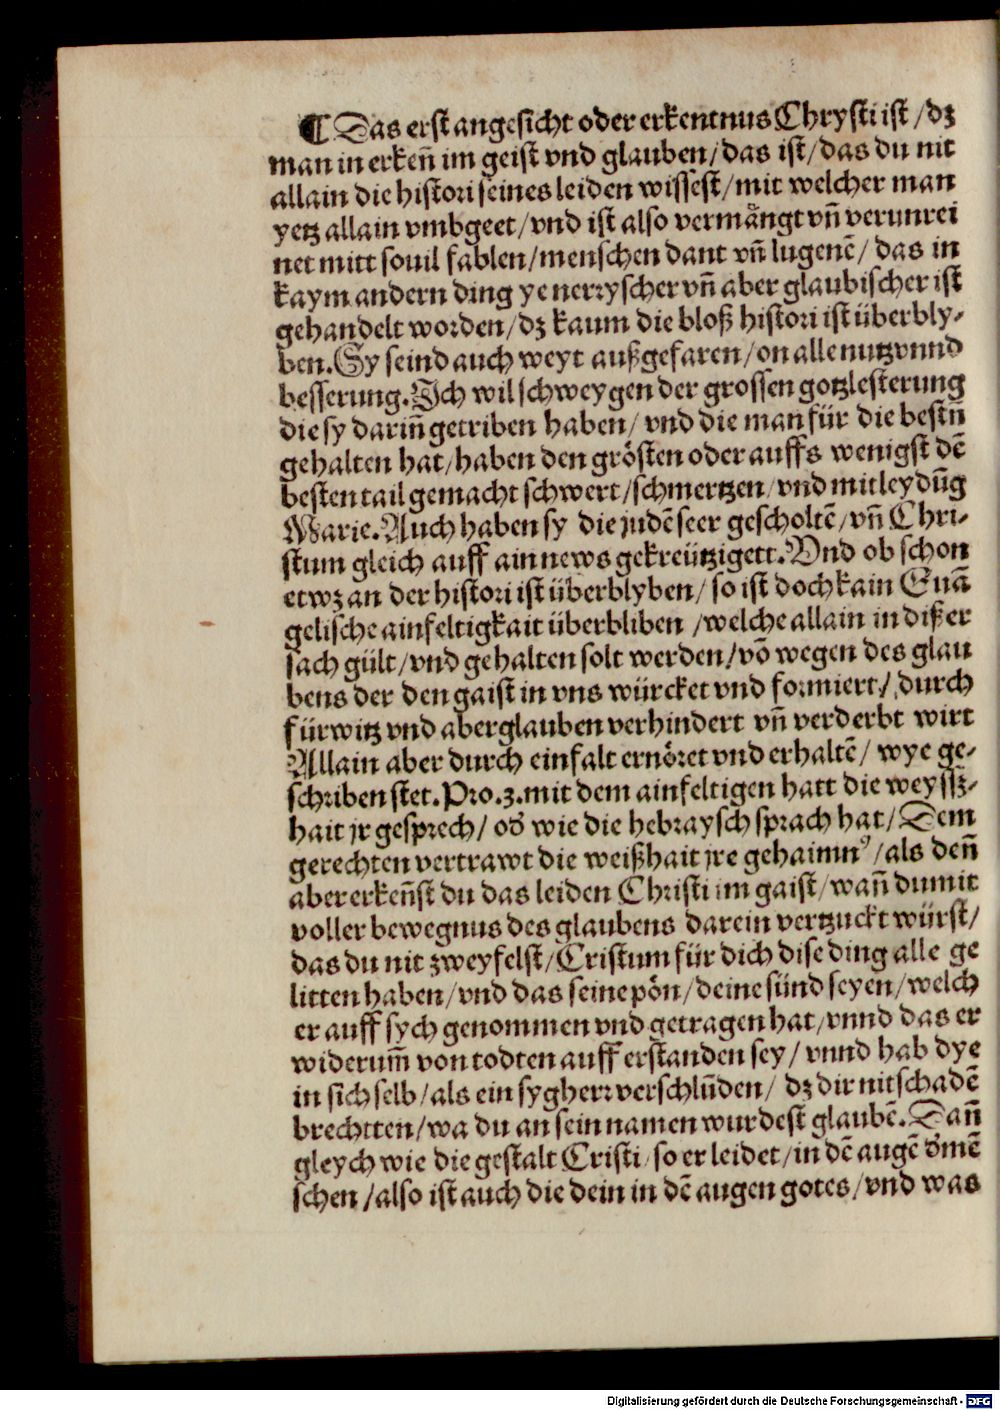 ¶ Das erst angesicht oder erkentnus Chrysti ist /dz
man in erkeñ im geist vnd glauben/das ist/das du nit
allain die histori seines leiden wissest/mit welcher man
yetz allain vmbgeet/vnd ist also vermåꝛngt vñ verunrei
net mitt souil fablen/menschen dant vñ lugenē/ das in
kaym andern ding ye nerryscher vñ aber glaubischer ist
gehandelt worden/dz kaum die bloß histori ist überbly-
ben. Sy seind auch weyt außgefaren/on alle nutz vnnd
besserung. Ich wil schweygen der grossen gotzlesterung
die sy dariñ getriben haben/ vnd die man für die bestñ
gehalten hat/haben den grösten oder auffs wenigst dē
besten tail gemacht schwert/schmertzen/vnd mitleydūg
Marie. Auch haben sy die judē seer gescholtē/vñ Chri-
stum gleich auff ain news gekreützigett. Vnd ob schon
etwz an der histori ist überblyben/ so ist doch kain Euā
gelische ainfeltigkait überbliben /welche allain in dißer
sach gült/vnd gehalten solt werden/vō wegen des glau
bens der den gaist in vns würcket vnd formiert/ durch
fürwitz vnd aberglauben verhindert vñ verderbt wirt
Allain aber durch einfalt ernöret vnd erhaltē/ wye ge-
schriben stet. Pro. 3. mit dem ainfeltigen hatt die weyssz-
hait jr gesprech/ od̕ wie die hebraysch sprach hat/ Dem
gerechten vertrawt die weißhait jre gehaimnꝰ/als deñ
aber erkeñst du das leiden Christi im gaist/wañ du mit
voller bewegnus des glaubens darein vertzuckt würst/
das du nit zweyfelst/Cristum für dich dise ding alle ge
litten haben/vnd das seine pön/deine sünd seyen/welch
er auff sych genommen vnd getragen hat/vnnd das er
widerum̃ von todten auff erstanden sey/ vnnd hab dye
in sich selb/als ein sygherr verschlūden/ dz dir nit schadē
brechtten/wa du an sein namen wurdest glaubē. Dañ
gleych wie die gestalt Cristi/so er leidet/in dē augē d̕ mē
schen /also ist auch die dein in dē augen gotes/vnd was
Digitalisierung gefördert durch die Deutsche Forschungsgemeinschaft - DFG